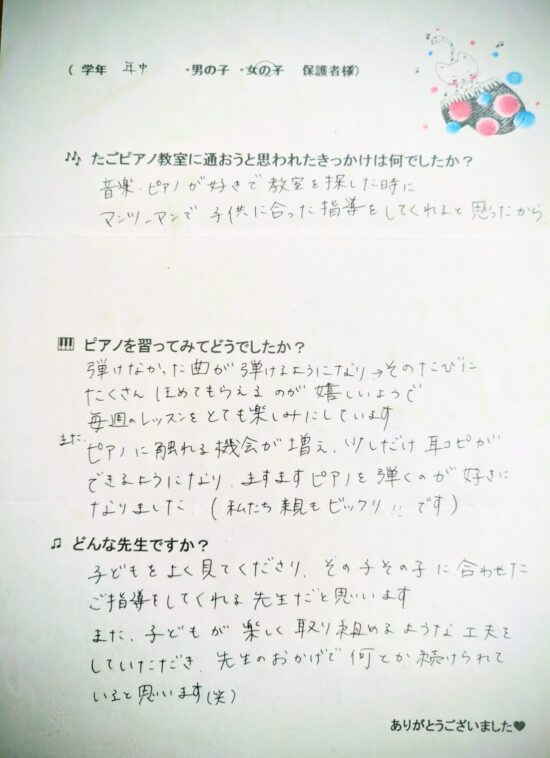 ( 学年 年中 ・男の子 ・女の子 保護者様)
たごピアノ教室に通おうと思われたきっかけは何でしたか？
音楽・ピアノが好きで教室を探した時に
マンツーマンで子供に合った指導をしてくれると思ったから
ピアノを習ってみてどうでしたか？
弾けなかった曲が弾けるようになり→そのたびに
たくさんほめてもらえるのが嬉しいようで
毎週のレッスンをとても楽しみにしています
また、ピアノに触れる機会が増え、少しだけ耳コピが
できるようになり、ますますピアノを弾くのが好きに
なりました。(私たち親もビックリ!!です)
どんな先生ですか？
子どもをよく見てくださり、その子その子に合わせた
ご指導をしてくれる先生だと思います
また、子どもが楽しく取り組めるような工夫を
していただき、先生のおかげで何とか続けられて
いると思います(笑)
ありがとうございました♥